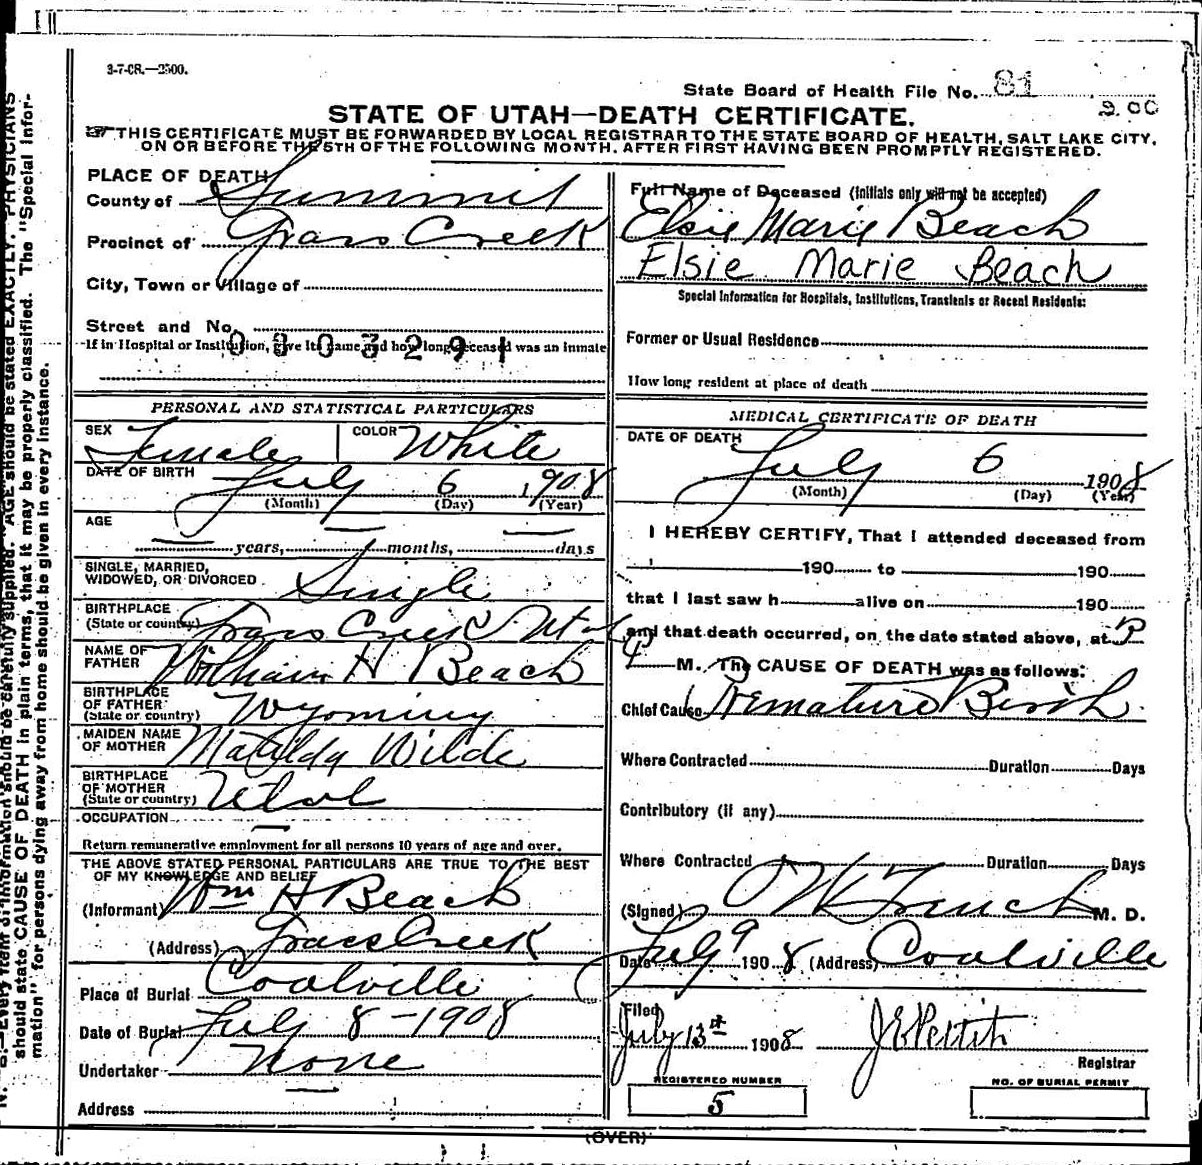 3-7-08.—2500.
State Board of Health File No. 81
2.00
STATE OF UTAH—DEATH CERTIFICATE.
☞ THIS CERTIFICATE MUST BE FORWARDED BY LOCAL REGISTRAR TO THE STATE BOARD OF HEALTH, SALT LAKE CITY,
ON OR BEFORE THE 5TH OF THE FOLLOWING MONTH. AFTER FIRST HAVING BEEN PROMPTLY REGISTERED.
PLACE OF DEATH
County of Summit
Precinct of Grass Creek
City, Town or Village of
Street and No.
0 3 0 3 2 9 1
If in Hospital or Institution, give its name and how long deceased was an inmate
PERSONAL AND STATISTICAL PARTICULARS
SEX Female COLOR White
DATE OF BIRTH July 6 1908
(Month) (Day) (Year)
AGE
— years, — months, — days
SINGLE, MARRIED,
WIDOWED, OR DIVORCED Single
BIRTHPLACE
(State or country) Grass Creek Utah
NAME OF
FATHER William H Beach
BIRTHPLACE
OF FATHER
(State or country) Wyoming
MAIDEN NAME
OF MOTHER Matilda Wilde
BIRTHPLACE
OF MOTHER
(State or country) Utah
OCCUPATION —
Return remunerative employment for all persons 10 years of age and over.
THE ABOVE STATED PERSONAL PARTICULARS ARE TRUE TO THE BEST
OF MY KNOWLEDGE AND BELIEF
(Informant) Wm H Beach
(Address) Grass Creek
Place of Burial Coalville
Date of Burial July 8 - 1908
Undertaker None
Address —
Full Name of Deceased (Initials only will not be accepted)
Elsie Marie Beach
Elsie Marie Beach
Special Information for Hospitals, Institutions, Transients or Recent Residents:
Former or Usual Residence
How long resident at place of death
MEDICAL CERTIFICATE OF DEATH
DATE OF DEATH
July 6 1908
(Month) (Day) (Year)
I HEREBY CERTIFY, That I attended deceased from
190 to 190
that I last saw h alive on 190
and that death occurred, on the date stated above, at P
4 M. The CAUSE OF DEATH was as follows:
Chief Cause Premature Birth
Where Contracted Duration Days
Contributory (if any)
Where Contracted Duration Days
(Signed) M. D.
Date July 9 1908 (Address) Coalville
Filed
July 13th 1908 J E Pettit
Registrar
REGISTERED NUMBER
5
NO. OF BURIAL PERMIT
(OVER)
N. B.—Every item of information should be carefully supplied. AGE should be stated EXACTLY. PHYSICIANS
should state CAUSE OF DEATH in plain terms, that it may be properly classified. The "Special Infor-
mation" for persons dying away from home should be given in every instance.